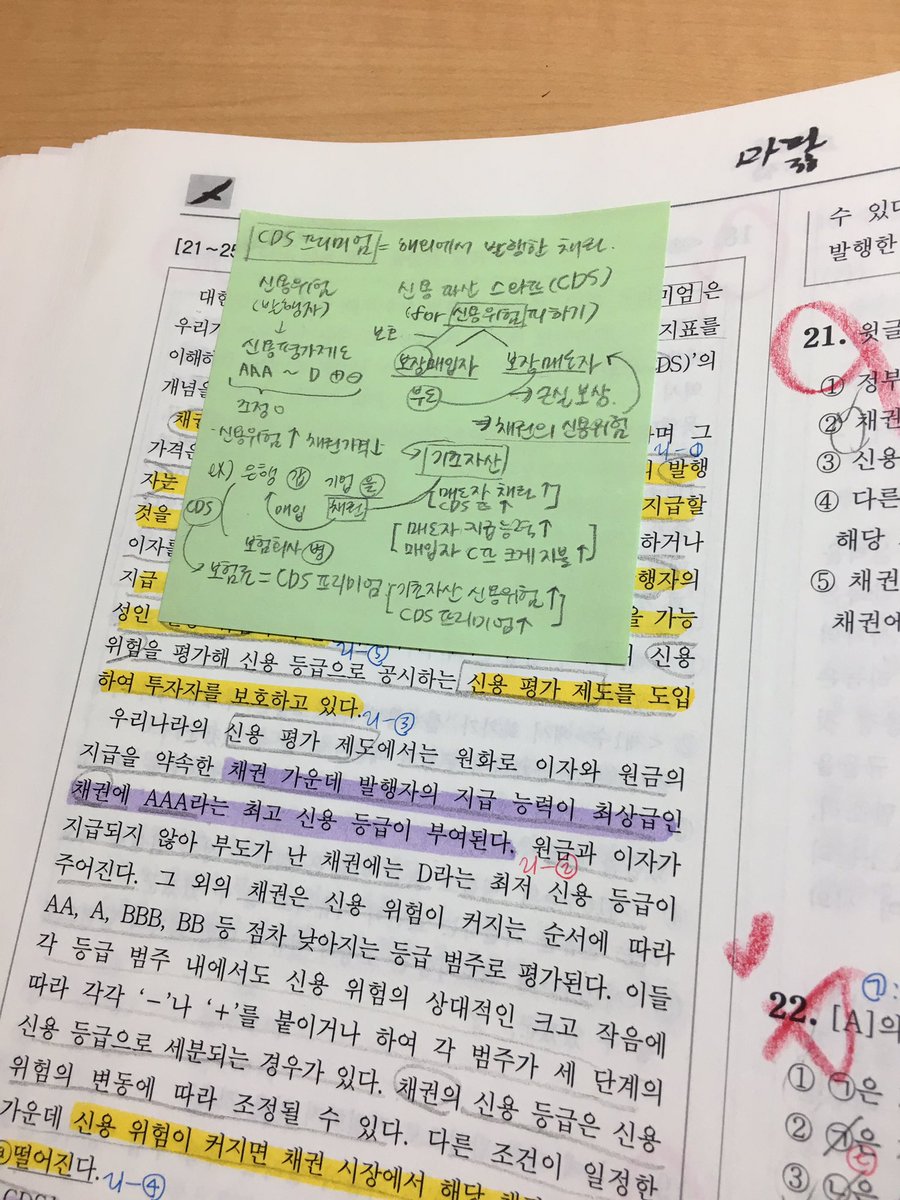 마닳
[21~25
CDS 프리미엄 = 해외에서 발행한 채권.
신용위험
(발행자)
↓
신용평가제도
AAA ~ D ⊕⊖
조정 ○
신용위험↑ 채권가격↓
신용 파산 스와프(CDS)
(for 신용위험 피하기)
보호
보장매입자 보장매도자
부도 → 손실 보상.
→ 채권의 신용위험
기초자산
ex) 은행 갑 기업 을
매입 채권
CDS
보험회사 병
→ 보험료 = CDS 프리미엄
[매도자 채권↑
CDS 프↑]
[매도자 지급능력↑
매입자 C프 크게 지불↑]
[기초자산 신용위험↑
CDS 프리미엄↑]
대한
미엄은
우리
지표를
이해하
DS)'의
개념을
채권
하며 그
ㄴ-①
가격은
발행
자는
지급할
것을
하거나
이자를
지급
행자의
성인
을 가능
ㄴ-⑤
신용
위험을 평가해 신용 등급으로 공시하는 신용 평가 제도를 도입
하여 투자자를 보호하고 있다.
ㄴ-③
우리나라의 신용 평가 제도에서는 원화로 이자와 원금의
지급을 약속한 채권 가운데 발행자의 지급 능력이 최상급인
채권에 AAA라는 최고 신용 등급이 부여된다. 원금과 이자가
ㄴ-②
지급되지 않아 부도가 난 채권에는 D라는 최저 신용 등급이
주어진다. 그 외의 채권은 신용 위험이 커지는 순서에 따라
AA, A, BBB, BB 등 점차 낮아지는 등급 범주로 평가된다. 이들
각 등급 범주 내에서도 신용 위험의 상대적인 크고 작음에
따라 각각 '-'나 '+'를 붙이거나 하여 각 범주가 세 단계의
신용 등급으로 세분되는 경우가 있다. 채권의 신용 등급은 신용
위험의 변동에 따라 조정될 수 있다. 다른 조건이 일정한
가운데 신용 위험이 커지면 채권 시장에서 해당 채
ⓐ떨어진다.
ㄴ-④
수 있다
발행한
21. 윗글
① 정부
② 채권
③ 신용
④ 다른
해당
⑤ 채권
채권에
22. [A]의
① ㉠은
② ㉠은
③ ㉡은